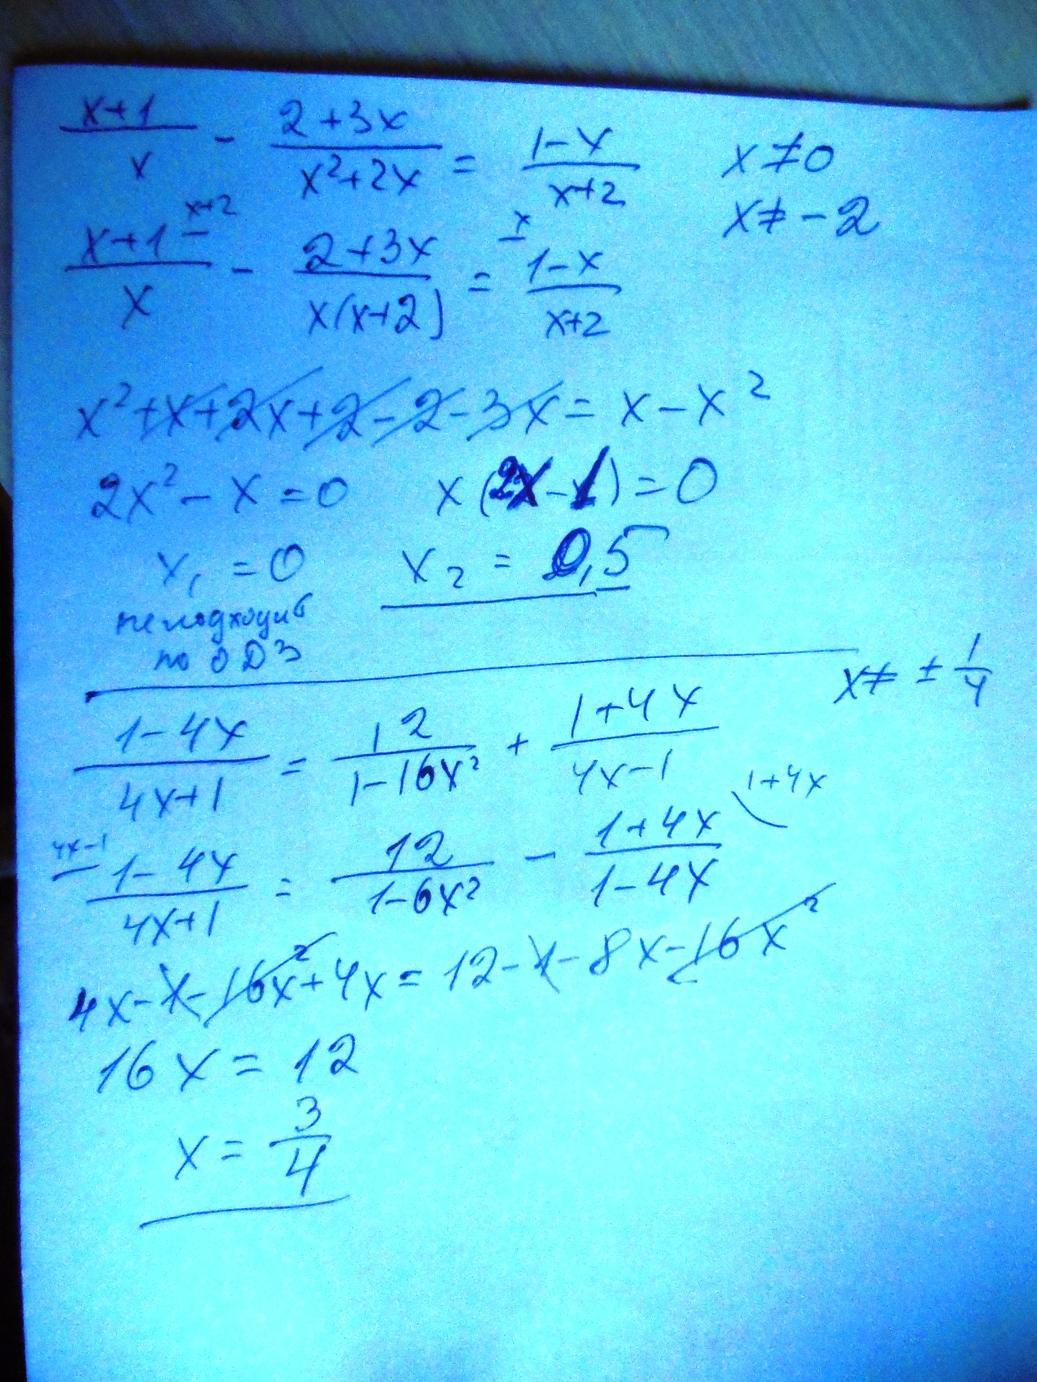 (x+1)/x - (2+3x)/(x²+2x) = (1-x)/(x+2)   x≠0
x≠-2
x+2   x
(x+1)/x - (2+3x)/(x(x+2)) = (1-x)/(x+2)
x²+x+2x+2-2-3x = x-x²
2x²-x=0   x(2x-1)=0
x₁=0   x₂=0,5
не подходит
по ОДЗ
x≠ ± 1/4
(1-4x)/(4x+1) = 12/(1-16x²) + (1+4x)/(4x-1)
4x-1   1+4x
(1-4x)/(4x+1) = 12/(1-6x²) - (1+4x)/(1-4x)
4x-1-16x²+4x=12-1-8x-16x²
16x=12
x=3/4